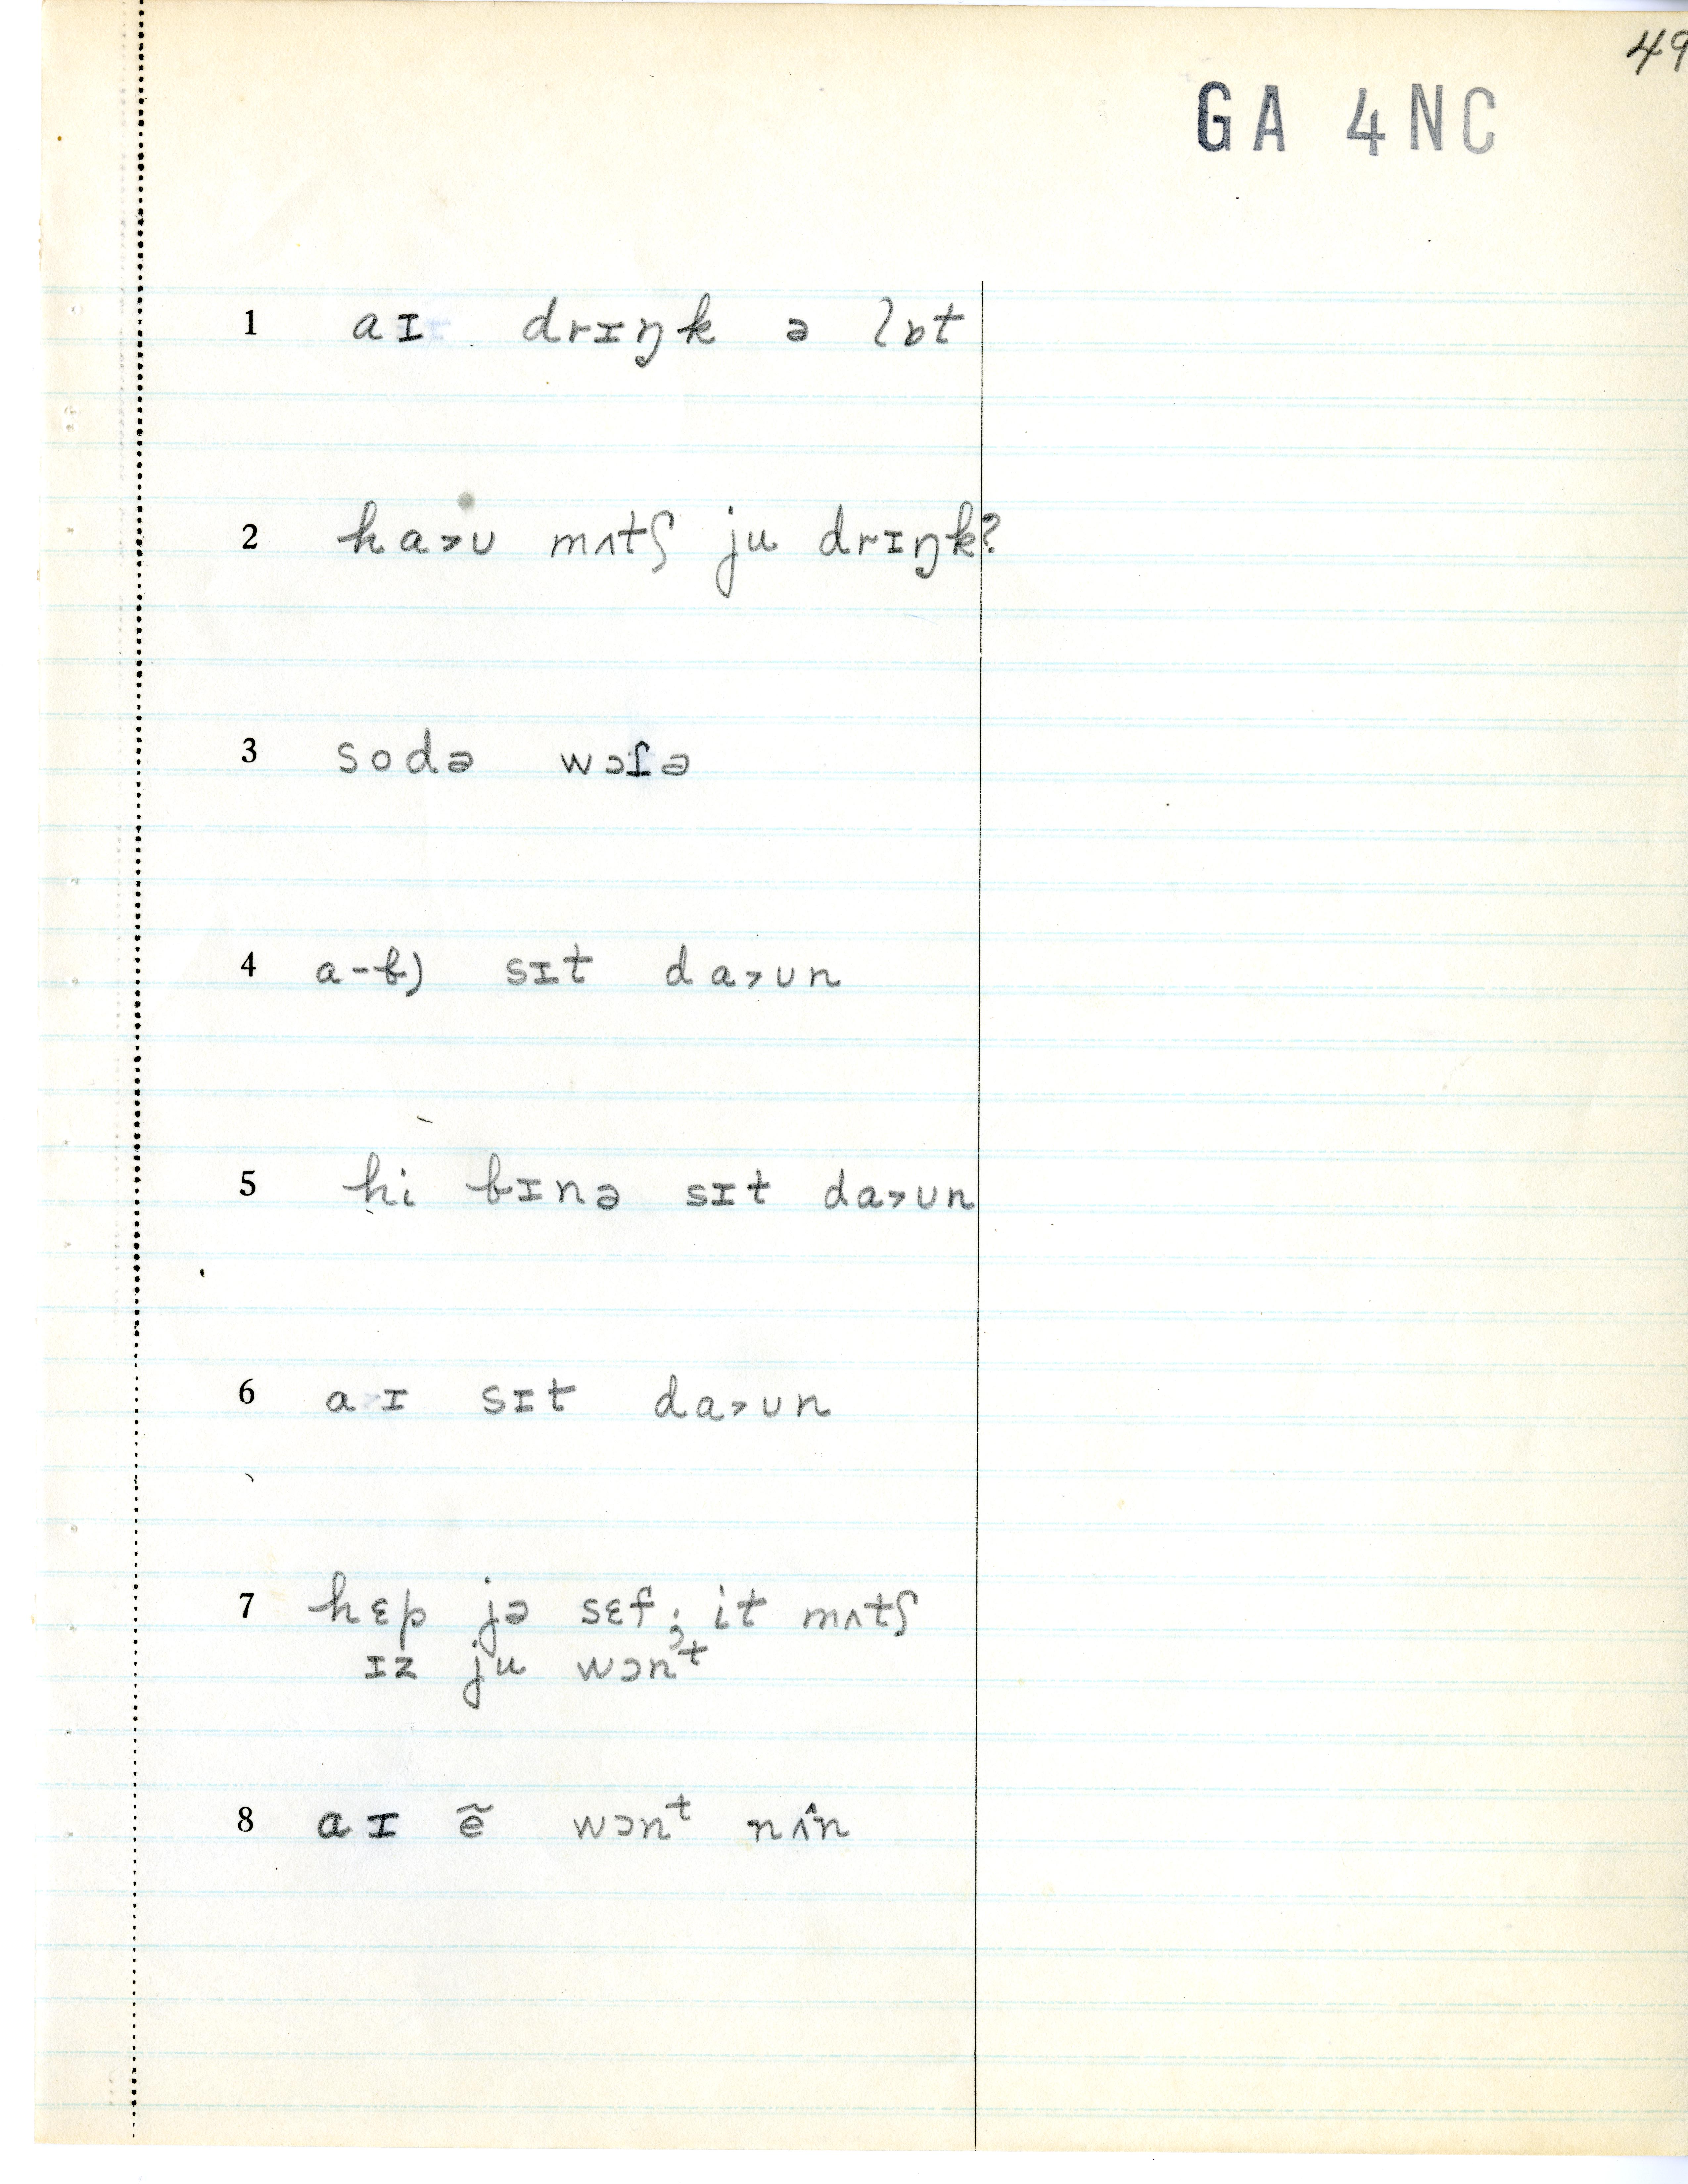 49
GA 4NC
1 aɪ drɪŋk ə lɒt
2 ha˃ʊ mʌtʃ ju drɪŋk?
3 sodə wɔɾə
4 a-b) sɪt da˃ʊn
5 hi bɪnə sɪt da˃ʊn
6 aɪ sɪt da˃ʊn
7 hɛp jə sɛf; it mʌtʃ
ɪz ju wɔnᵗ
8 aɪ ẽ wɔnᵗ nʌ̂n